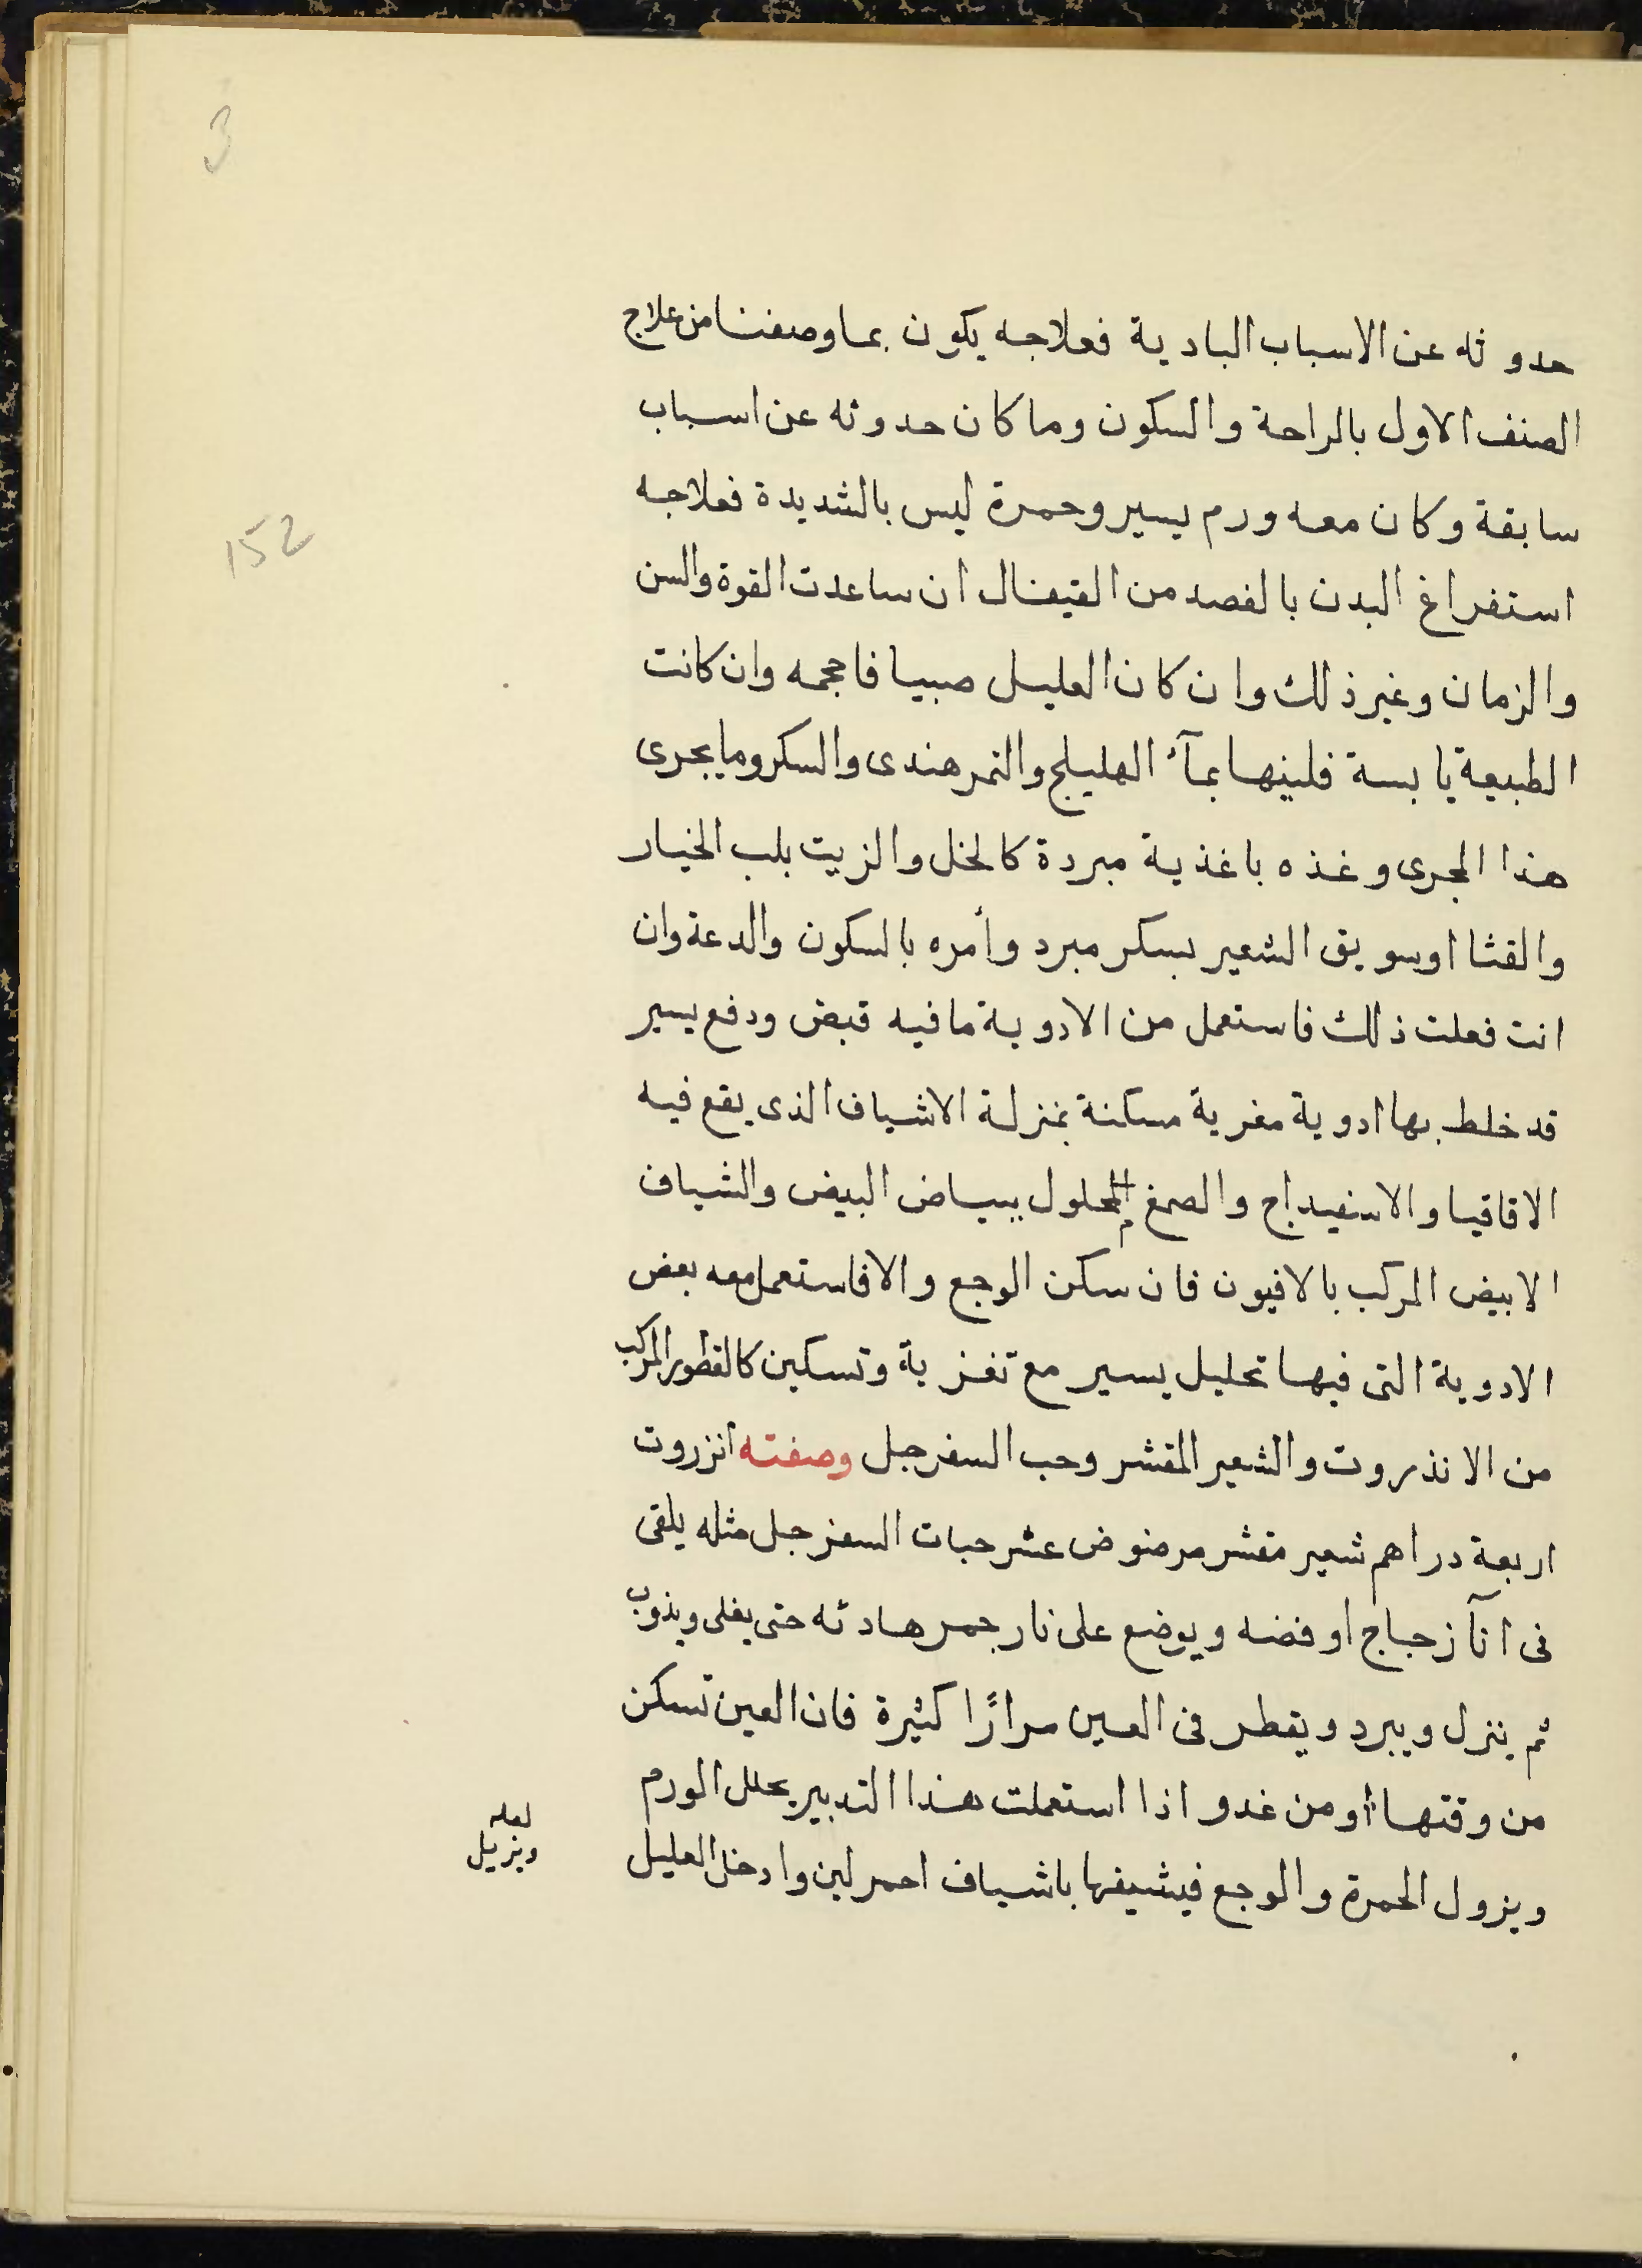 3
حدوثه عن الاسباب البادية فعلاجه يكون بما وصفنا من علاج
الصنف الاول بالراحة والسكون وما كان حدوثه عن اسباب
سابقة وكان معه ورم يسير وحمرة ليس بالشديدة فعلاجه
152
استفراغ البدن بالفصد من القيفال ان ساعدت القوة والسن
والزمان وغير ذلك وان كان العليل صبيا فاحجمه وان كانت
الطبيعة يابسة فلينها بمآء الهليلج والتمر هندى والسكر وما يجرى
هذا المجرى وغذه باغذية مبردة كالخل والزيت بلب الخيار
والقثا اوسويق الشعير بسكر مبرد وأمره بالسكون والدعة وان
انت فعلت ذلك فاستعمل من الادوية ما فيه قبض ودفع يسير
قد خلط بها ادوية مغرية مسكنة بمنزلة الاشياف الذى يقع فيه
الاقاقيا والاسفيداج والصمغ المحلول ببياض البيض والشياف
الابيض المركب بالافيون فان سكن الوجع والا فاستعمل معه بعض
الادوية التى فيها تحليل يسير مع تغزية وتسكين كالقطور المركب
من الانذروت والشعير المقشر وحب السفرجل وصفته انزروت
اربعة دراهم شعير مقشر مرضوض عشر حبات السفرجل مثله يلقى
فى انآ زجاج او فضه ويوضع على نار جمر هادئه حتى يغلى ويذوب
ثم ينزل ويبرد ويقطر فى العين مرارًا كثيرة فان العين تسكن
من وقتها أو من غدو اذا استعملت هذا التدبير يحلل الورم
ويزول الحمرة والوجع فيشيفها باشياف احمر لين وادخل العليل
لعله
ويزيل